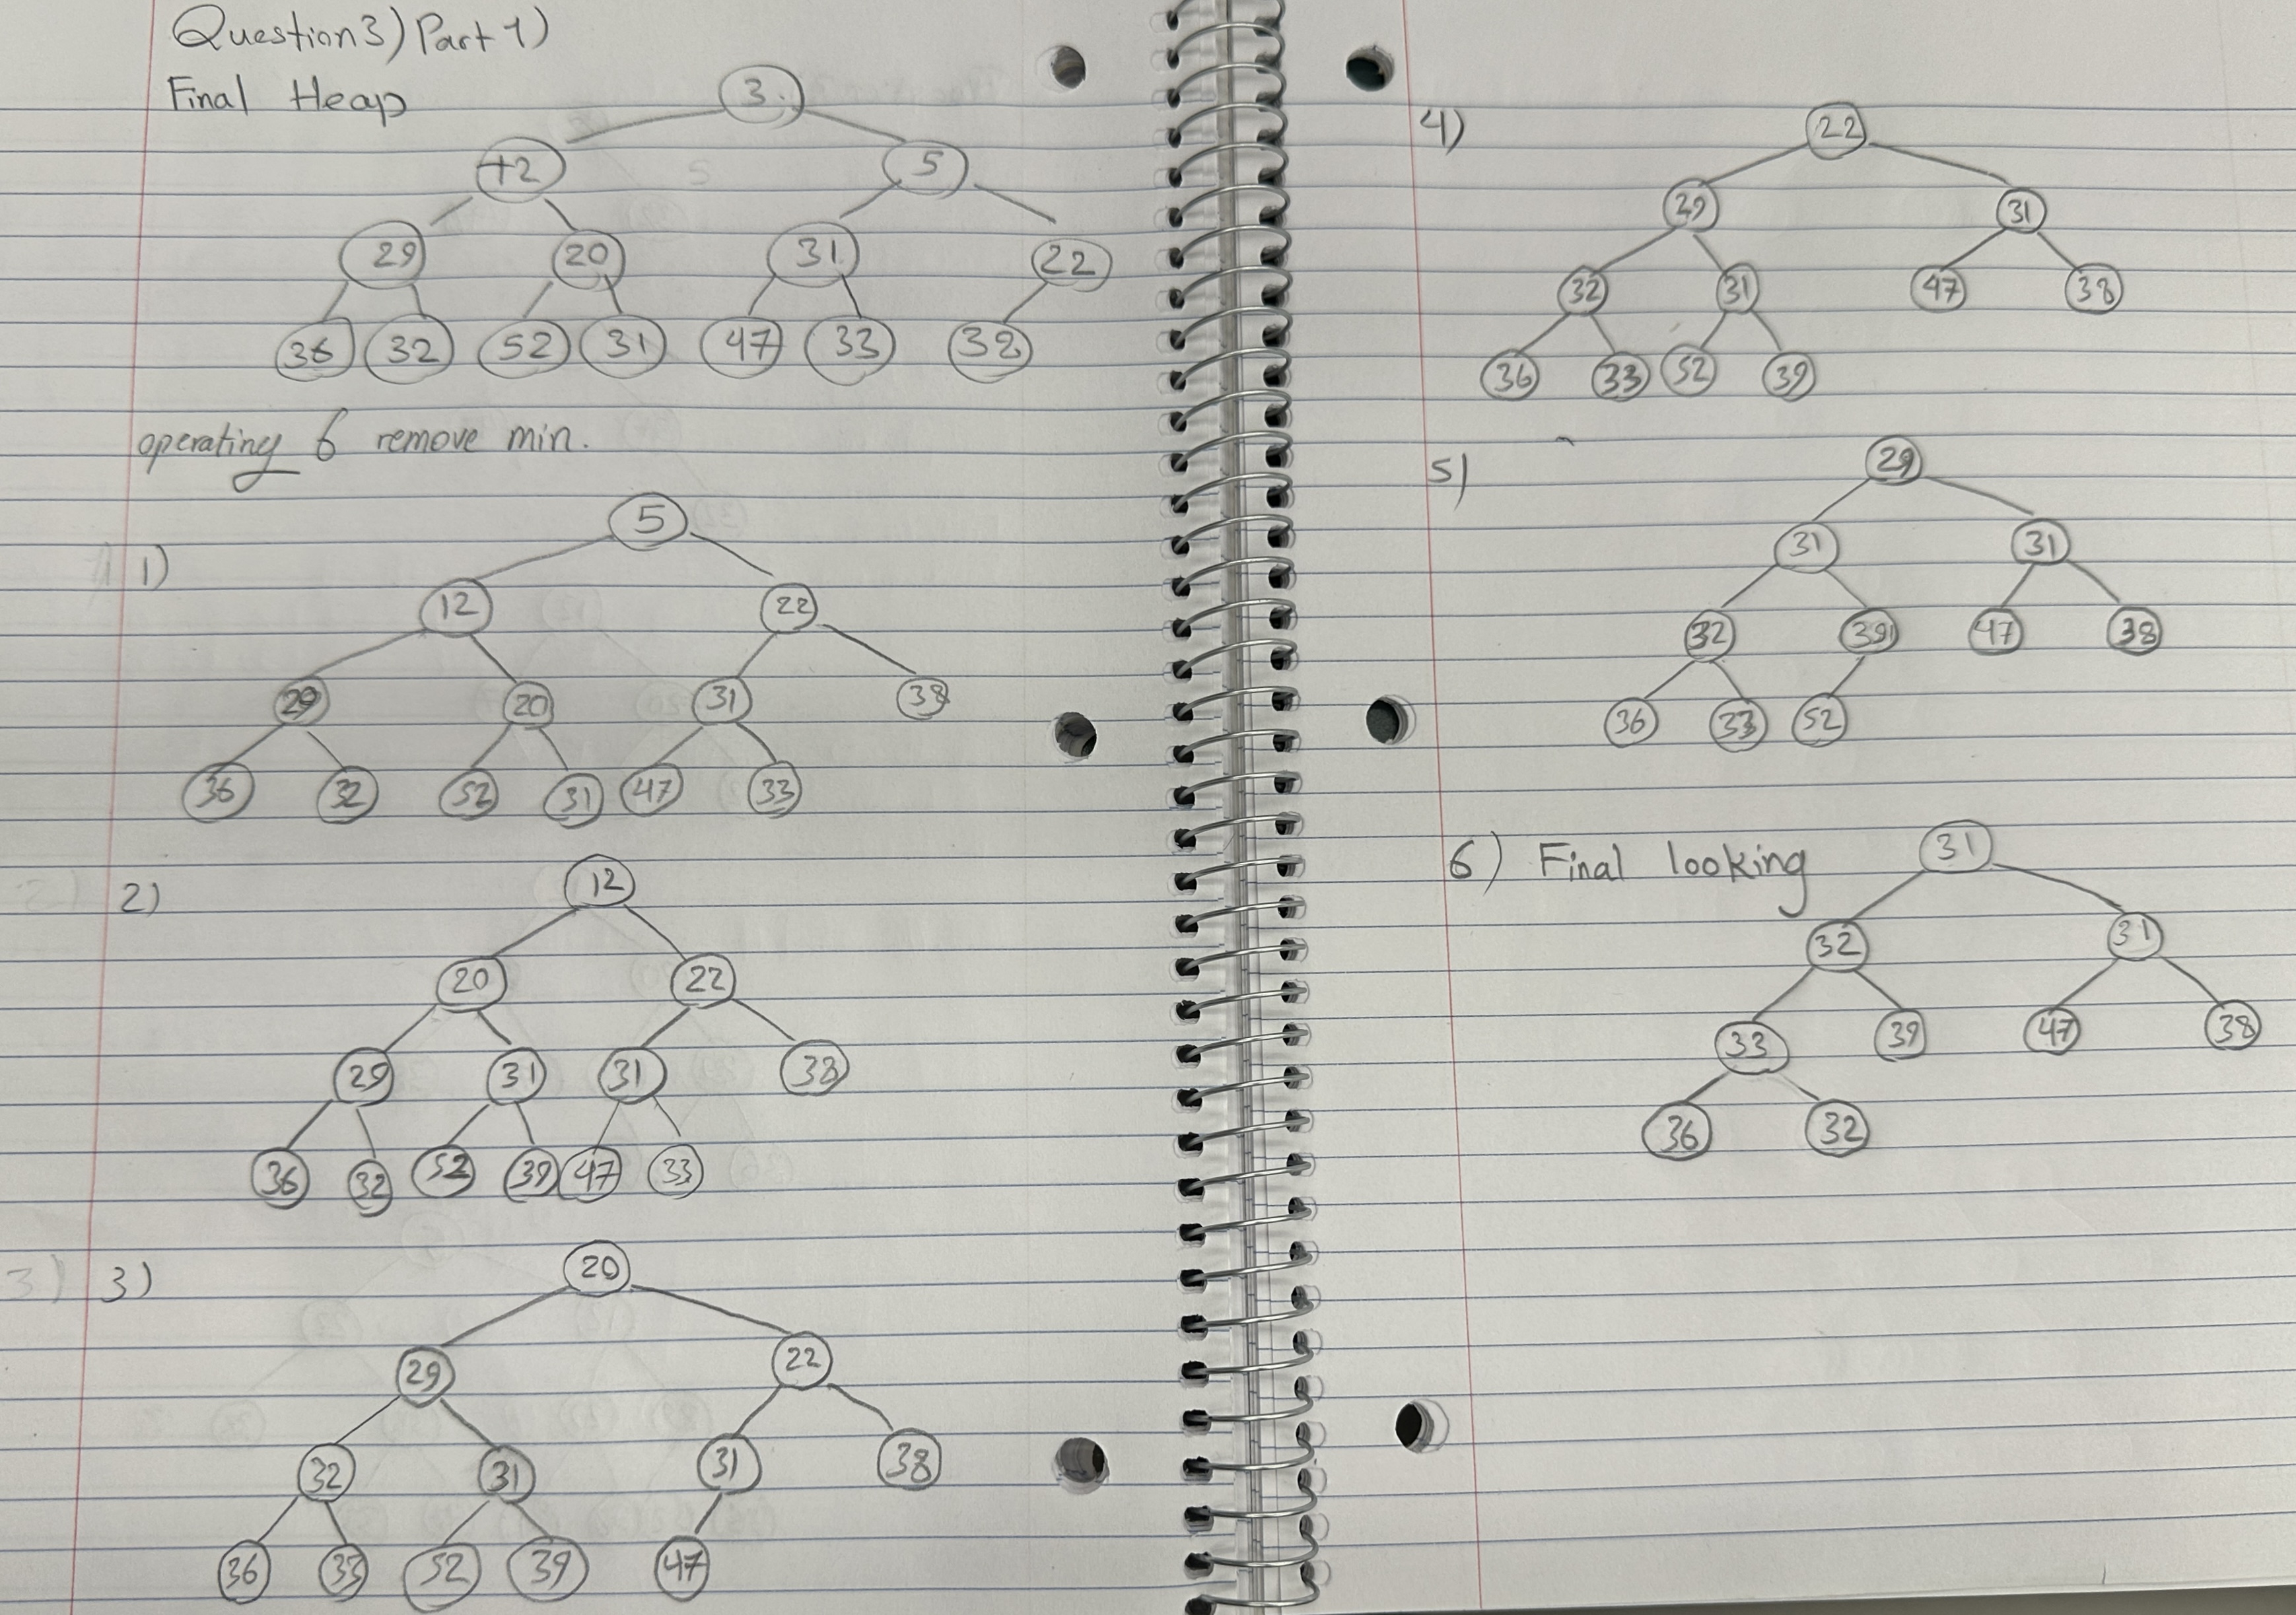 Question 3) Part 1)
Final Heap
3
12 5
29 20 31 22
36 32 52 31 47 33 38
operating 6 remove min.
1)
5
12 22
29 20 31 38
36 32 52 31 47 33
2)
12
20 22
29 31 31 38
36 32 52 39 47 33
3)
20
29 22
32 31 31 38
36 33 52 39 47
4)
22
29 31
32 31 47 38
36 33 52 39
5)
29
31 31
32 39 47 38
36 33 52
6) Final looking
31
32 31
33 39 47 38
36 32